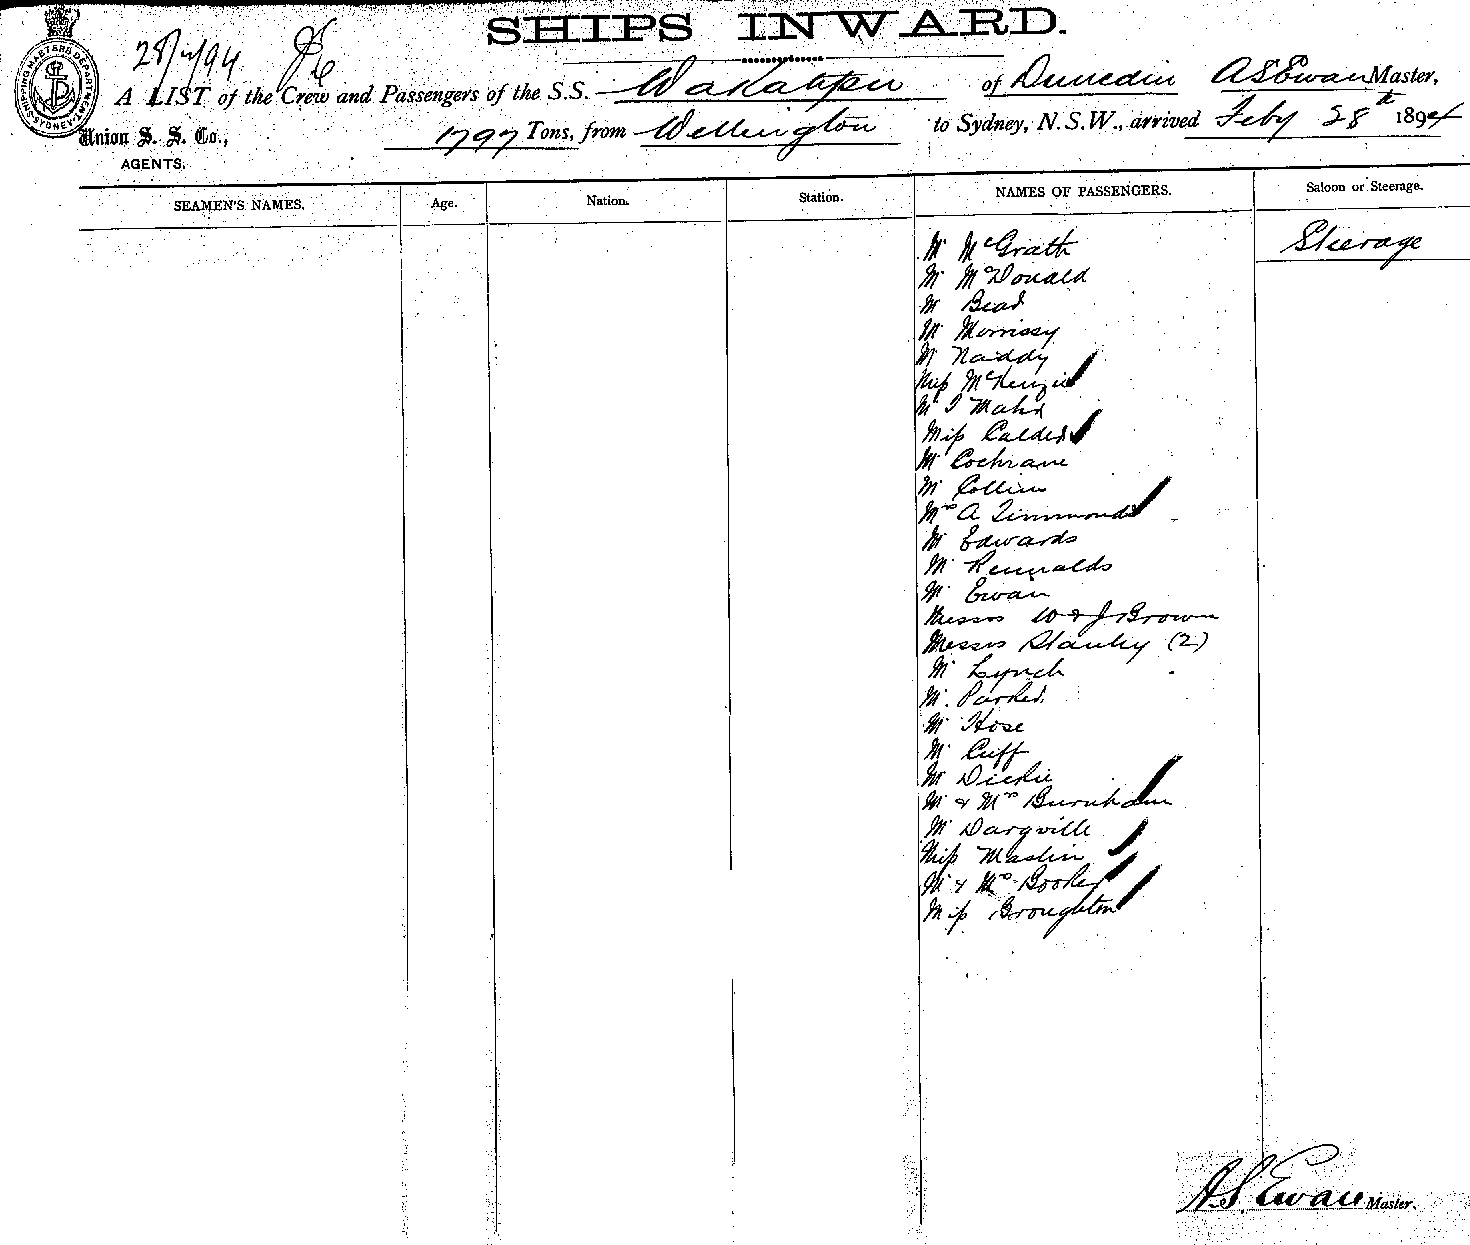 SHIPS INWARD.
28/2/94
SHIPPING MASTERS DEPARTMENT SYDNEY
A LIST of the Crew and Passengers of the S.S. Wakatipu of Dunedin A S Ewan Master,
Union S. S. Co., 1797 Tons, from Wellington to Sydney, N.S.W., arrived Feby 28th 1894
AGENTS.
SEAMEN'S NAMES. Age. Nation. Station. NAMES OF PASSENGERS. Saloon or Steerage.
Mr McGrath Steerage
Mr McDonald
Mr Bead
Mr Morrissy
Mr Naddy
Miss McKenzie
Mr T Maher
Miss Calder
Mr Cochrane
Mr Collins
Mrs A Simmonds
Mr Edwards
Mr Rennalds
Mr Ewan
Messrs W & J Brown
Messrs Stanley (2)
Mr Lynch
Mr. Parker
Mr Hose
Mr Cuff
Mr Dickie
Mr & Mrs Burnham
Mr Dargville
Miss Maslin
Mr & Mrs Booker
Miss Broughton
A.S. Ewan Master.